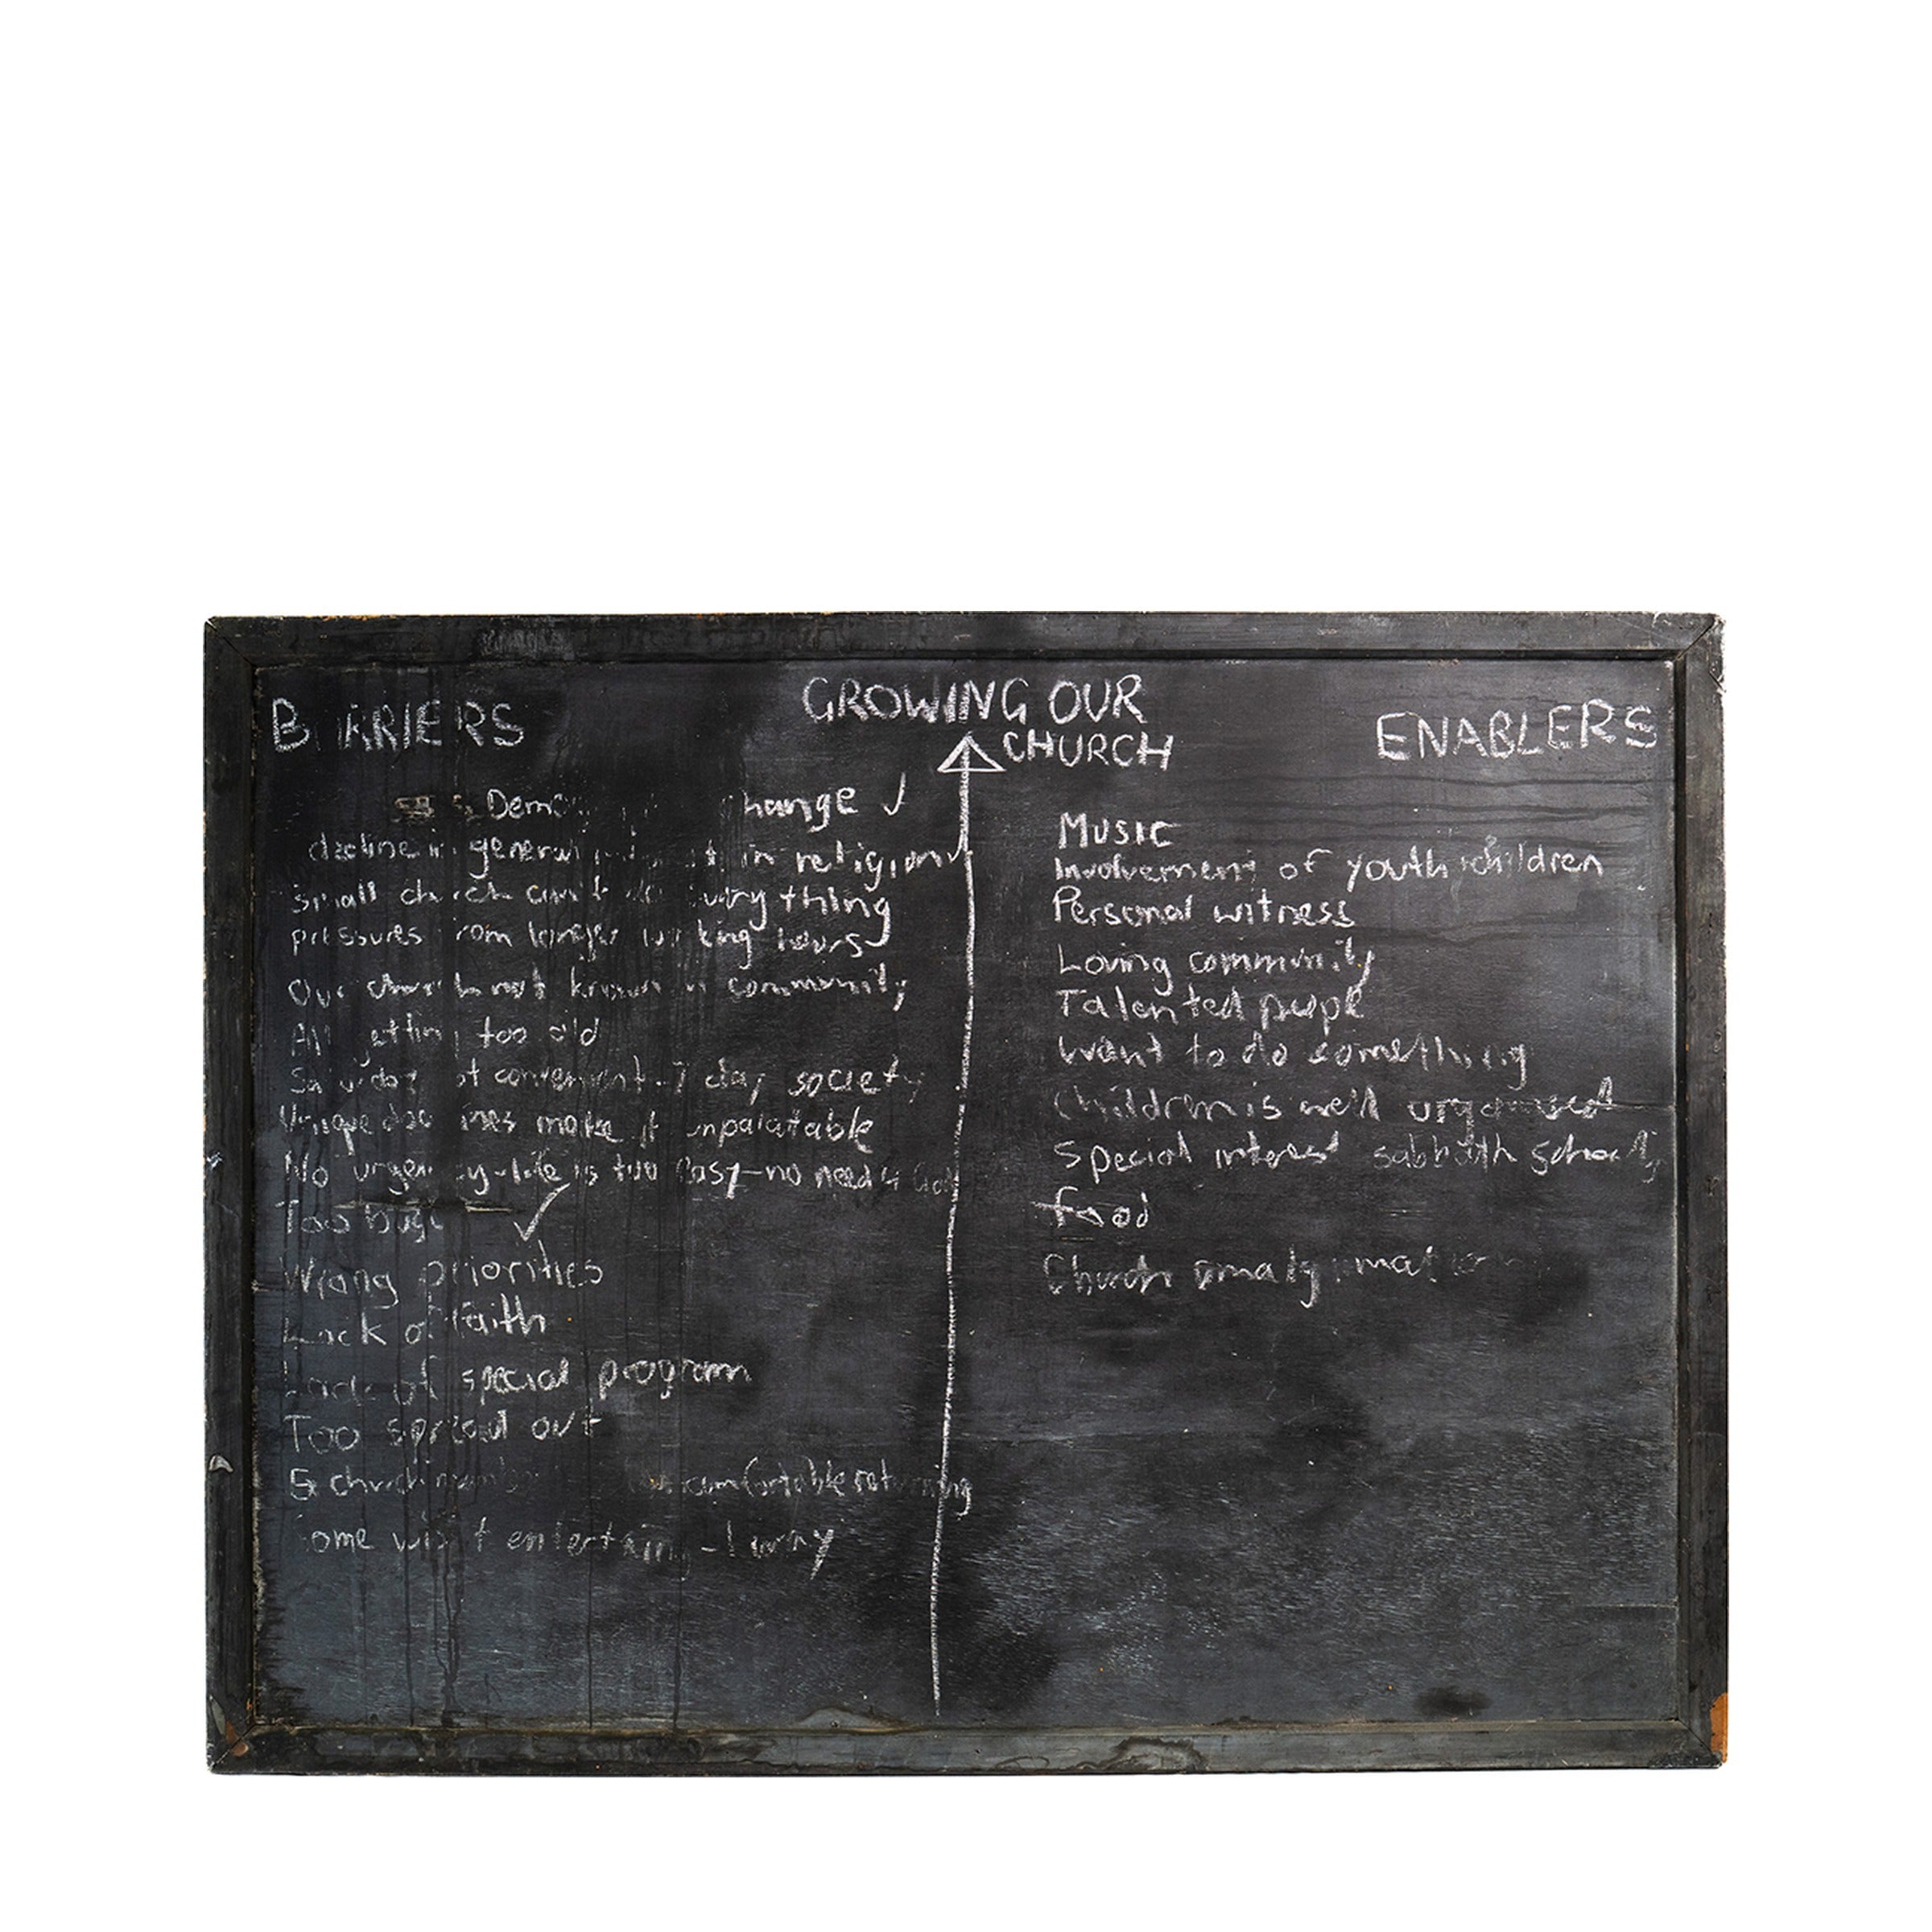 GROWING OUR
CHURCH
BARRIERS
change ✓
decline in general interest in religion ✓
small church can't do everything
pressures from longer working hours
Our church not known in community
All getting too old
Saturday not convenient - 7 day society
Unique doctrines make it unpalatable
No urgency - life is too easy - no need 4 God
Too busy ✓
Wrong priorities
Lack of faith
Lack of special program
Too spread out
church comfortable returning
Some want entertaining -
ENABLERS
MUSIC
Involvement of youth children
Personal witness
Loving community
Talented people
Want to do something
Children is well organised
Special interest sabbath schools
food
Church amalgamation